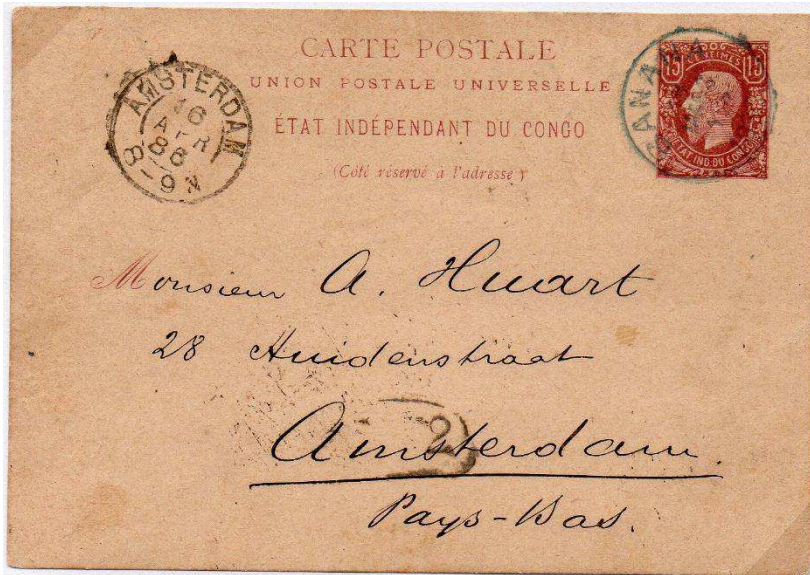 CARTE POSTALE
UNION POSTALE UNIVERSELLE
ÉTAT INDÉPENDANT DU CONGO
(Côté réservé a l'adresse)
AMSTERDAM
16
APR
86
8-9 N
BANANA
15 CENTIMES 15
ETAT IND. DU CONGO
Monsieur A. Huart
28 Huidenstraat
Amsterdam.
Pays-Bas.